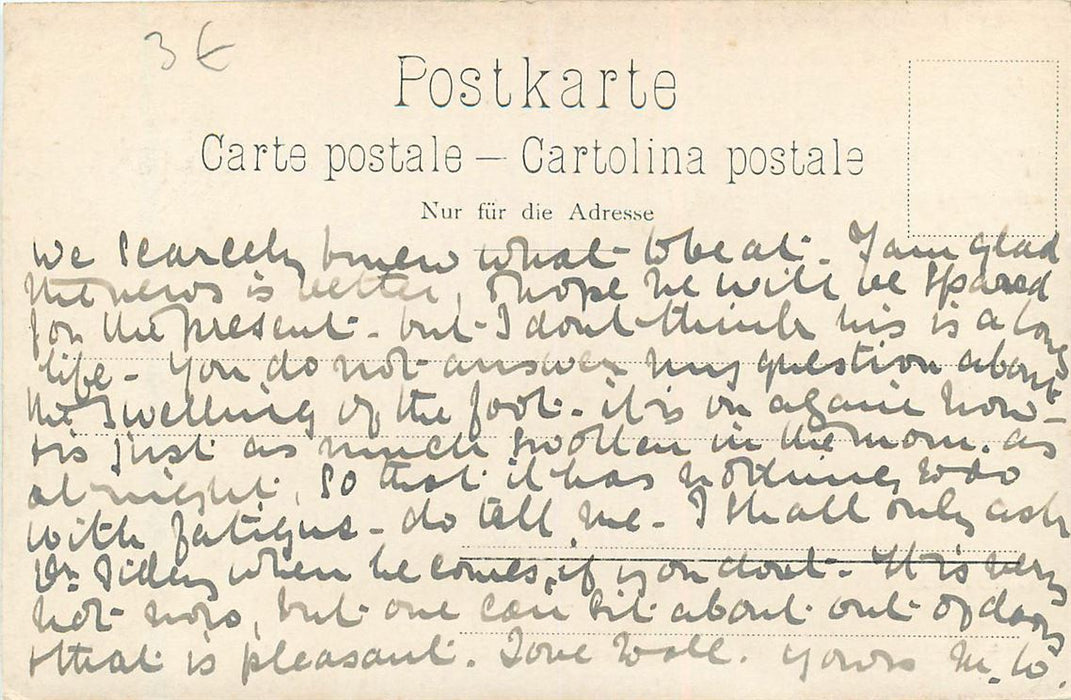 3 €
Postkarte
Carte postale – Cartolina postale
Nur für die Adresse
we scarcely knew what to be at. I am glad
the news is better, & hope he will be spared
for the present - but I dont think his is a long
life - You do not answer my question about
the swelling of the foot - it is on again now -
& is just as much swollen in the morn. as
at night, so that it has nothing to do
with fatigue - do tell me - I shall only ask
Dr. Sidey when he comes, if you dont. It is very
hot now, but one can sit about out of doors
& that is pleasant. Love to all. yours M. W.